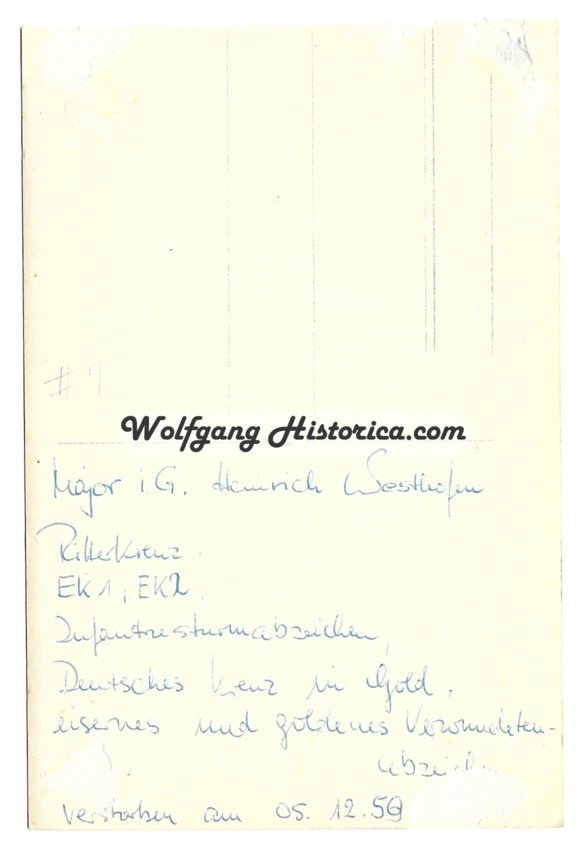 # 1
Wolfgang Historica.com
Major i.G. Heinrich Westhofen
Ritterkreuz.
EK1, EK2,
Infantriesturmabzeichen,
Deutsches Kreuz in Gold,
eisernes und goldenes Verwundeten-
abzei
verstorben am 05. 12.